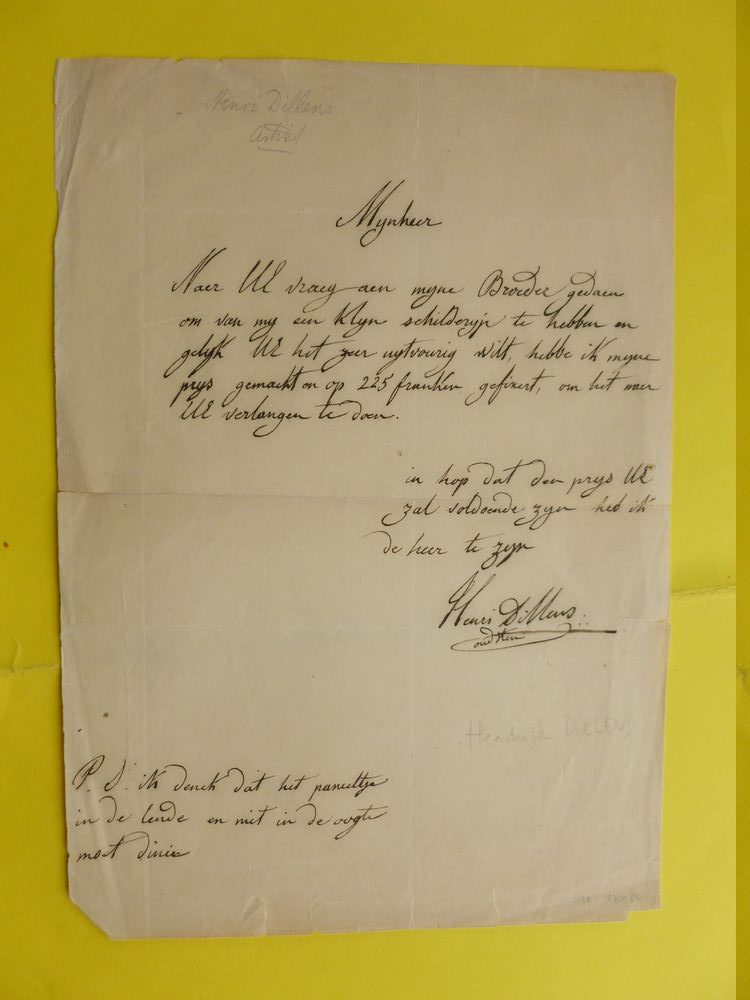 Henri Dillens
Artist
Mynheer
Naer UE vraeg aen myne Broeder gedaen
om van my een klyn schilderijn te hebben en
gelyk UE het zeer uytvourig wilt, hebbe ik myne
prys gemackt en op 225 franken gefixert, om het naer
UE verlangen te doen.
in hop dat den prys UE
zal voldoende zyn heb ik
de heer te zyn
Henri Dillens
oudsten
Hendrick DILLENS
P. S. ik denck dat het paneeltje
in de lende en niet in de oogte
moet